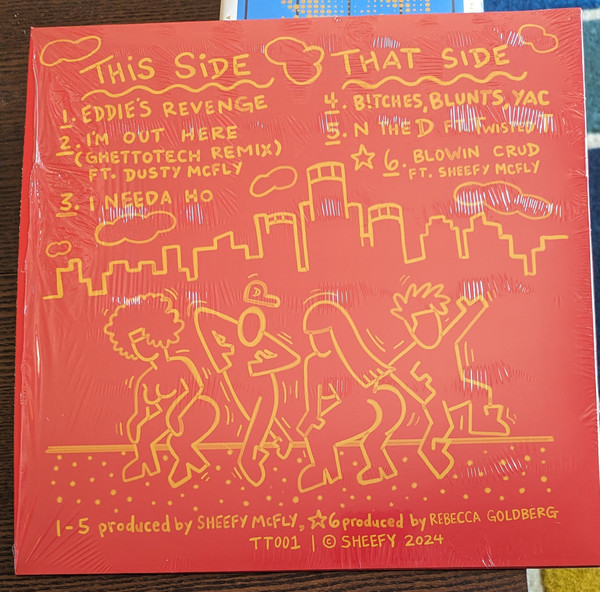 THIS SIDE
1. EDDIE'S REVENGE
2. I'M OUT HERE
(GHETTOTECH REMIX)
FT. DUSTY MCFLY
3. I NEEDA HO
THAT SIDE
4. B!TCHES, BLUNTS, YAC
5. N THE D FT. TWISTED T
☆ 6. BLOWIN CRUD
FT. SHEEFY MCFLY
D
1-5 produced by SHEEFY McFLY, ☆6 produced by REBECCA GOLDBERG
TT001 | © SHEEFY 2024